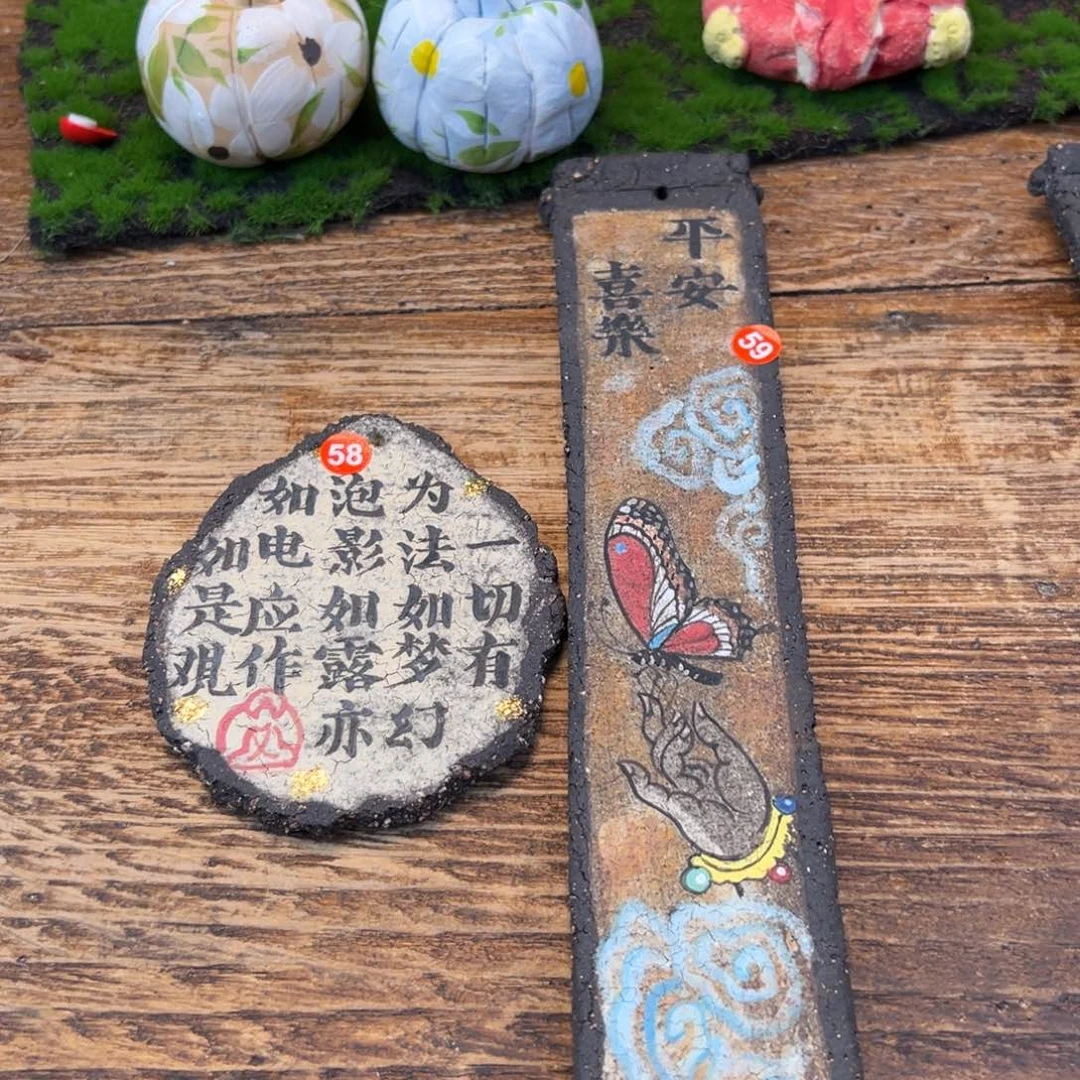 58
一切有
为法如梦幻
泡影如露亦
如电应作
如是观
平安
喜樂
59